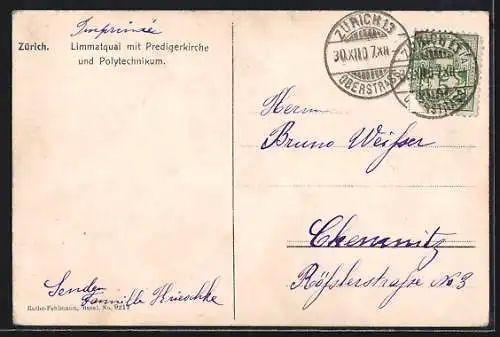 Imprimée
Zürich. Limmatquai mit Predigerkirche
und Polytechnikum.
ZÜRICH 13
30.XII.07.XII
OBERSTRASS
Herrn
Bruno Weißer
Chemnitz
Rößlerstraße No 3
Sender
Familie Krieschke